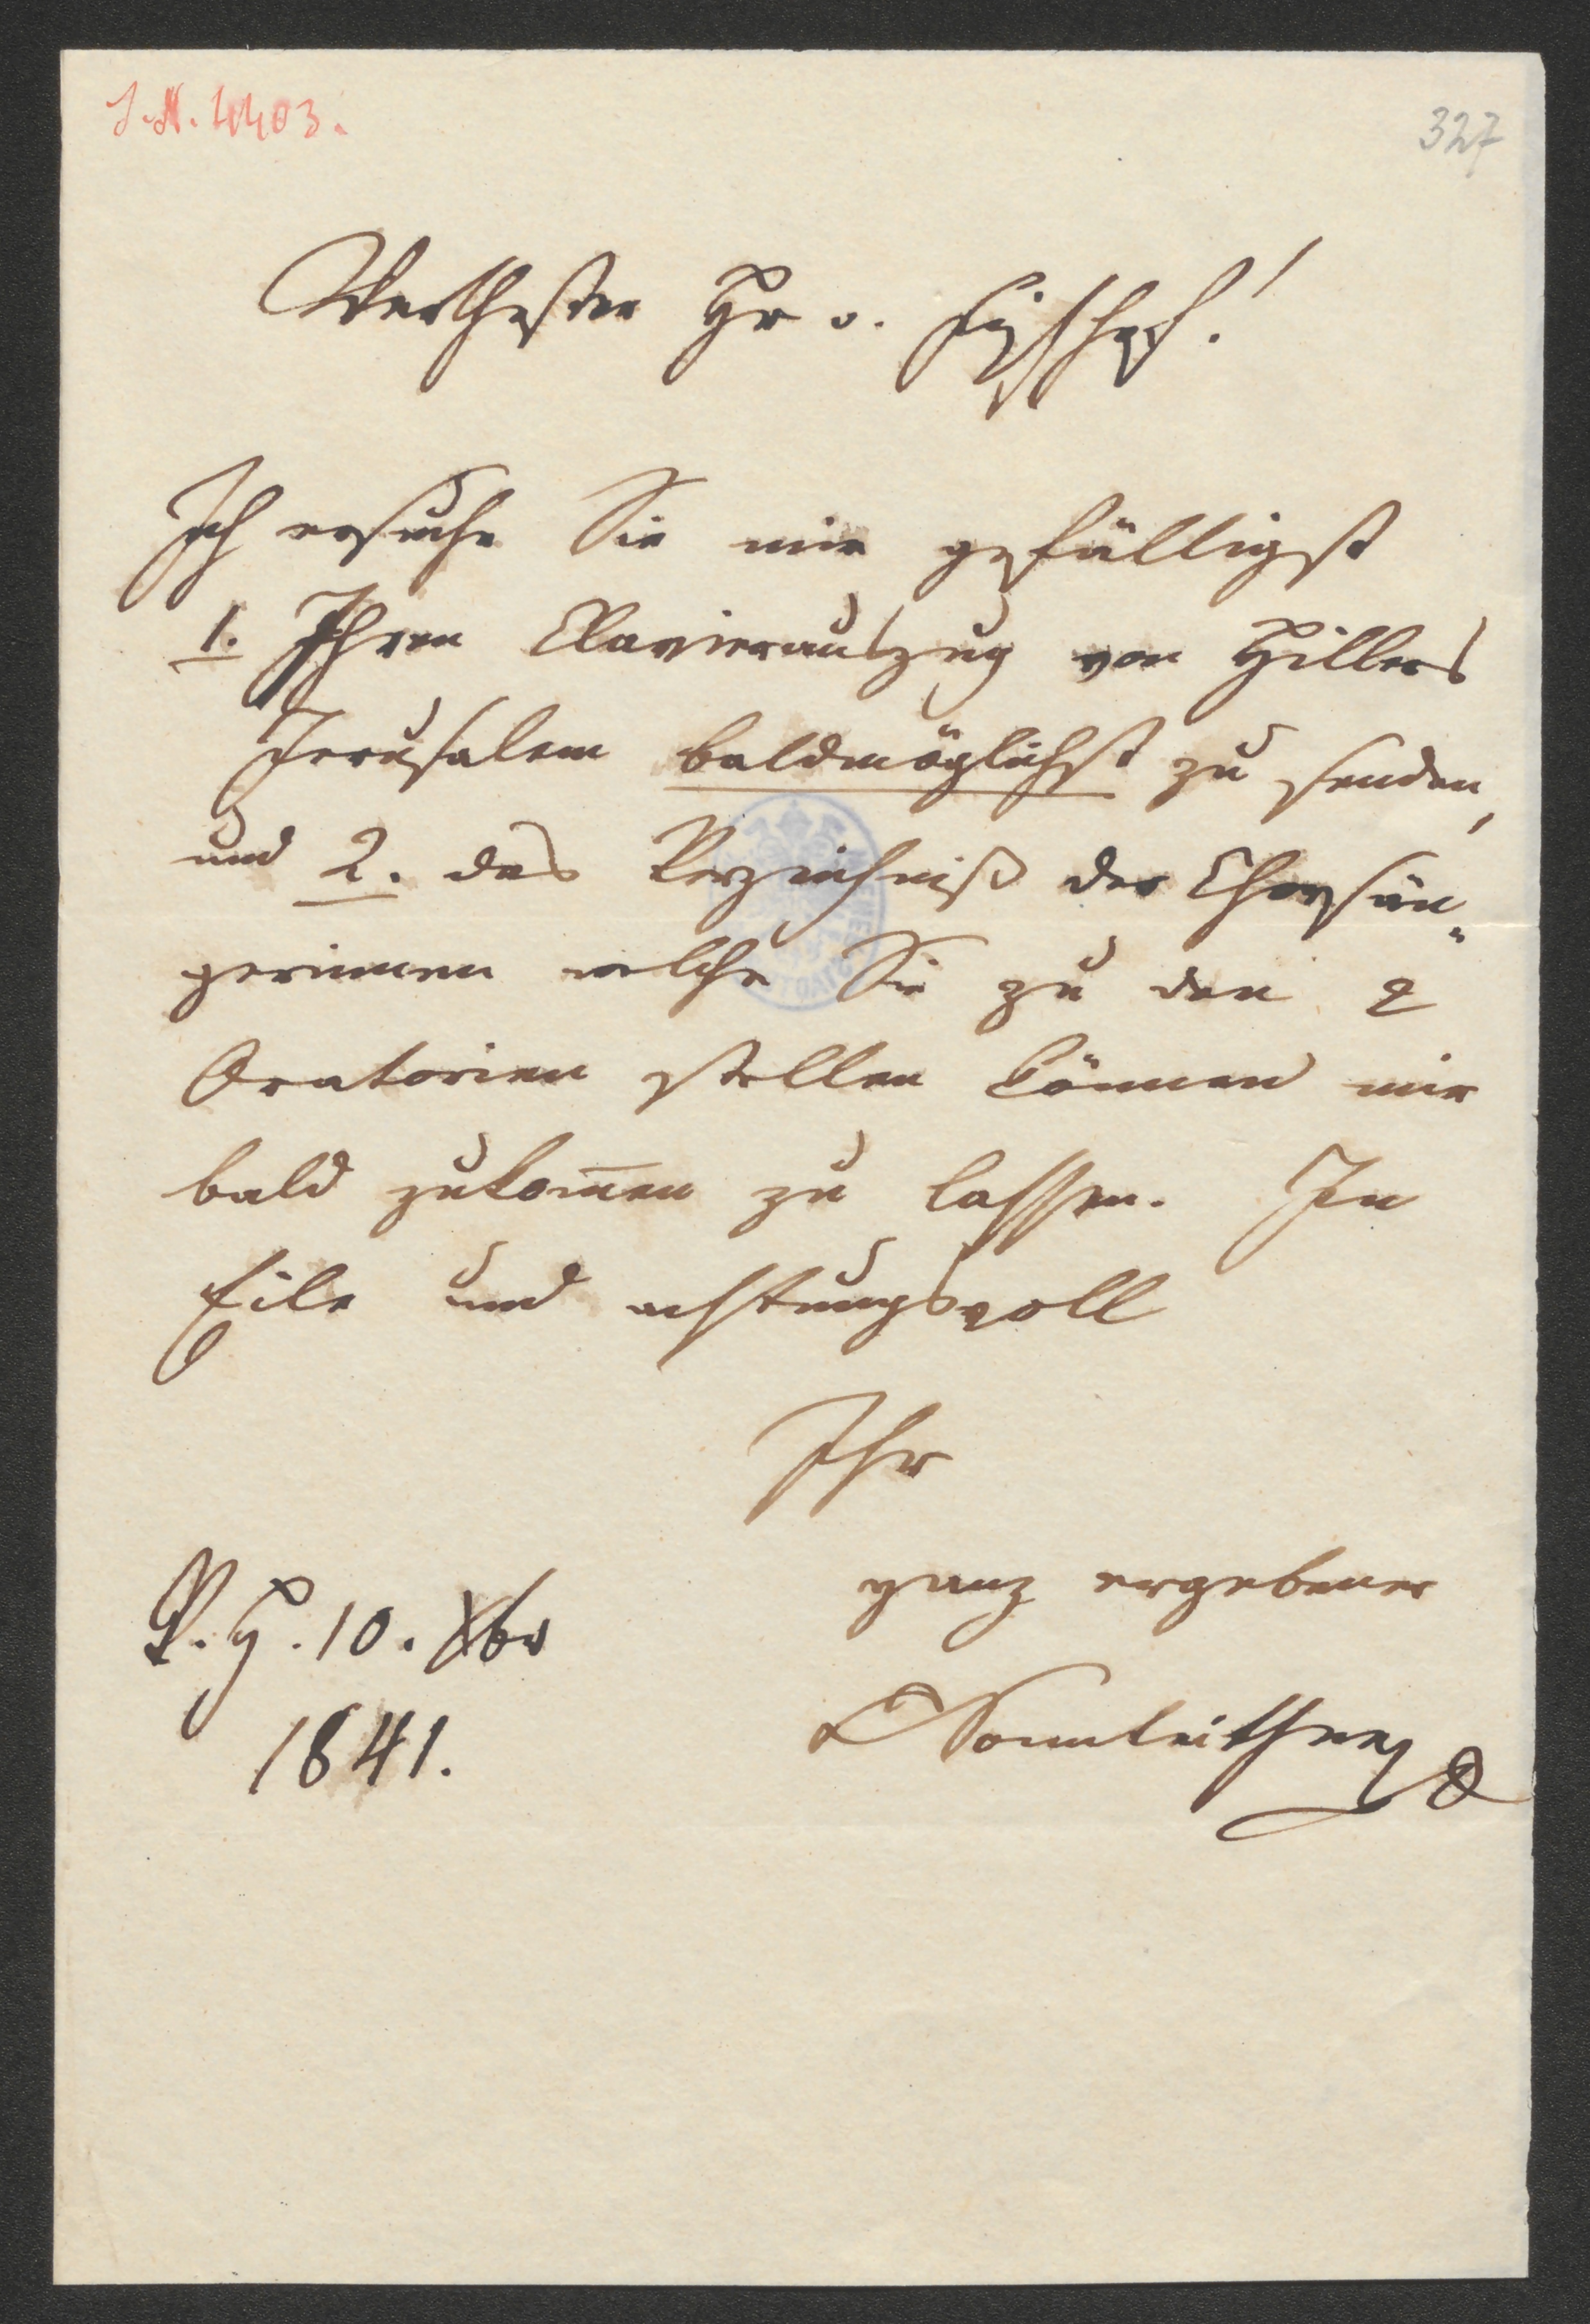 J.N. 4403.
327
Werthester Hr v. Fischhof!
Ich ersuche Sie mir gefälligst
1. Ihren Clavierauszug von Hillers
Jerusalem baldmöglichst zu senden,
und 2. das Verzeichniß der Chorsän„
gerinnen welche Sie zu den 2
Oratorien stellen können mir
bald zukom̅en zu lassen. In
Eile und achtungsvoll
Ihr
ganz ergebener
Sonnleithner
10. Xbr
1841.